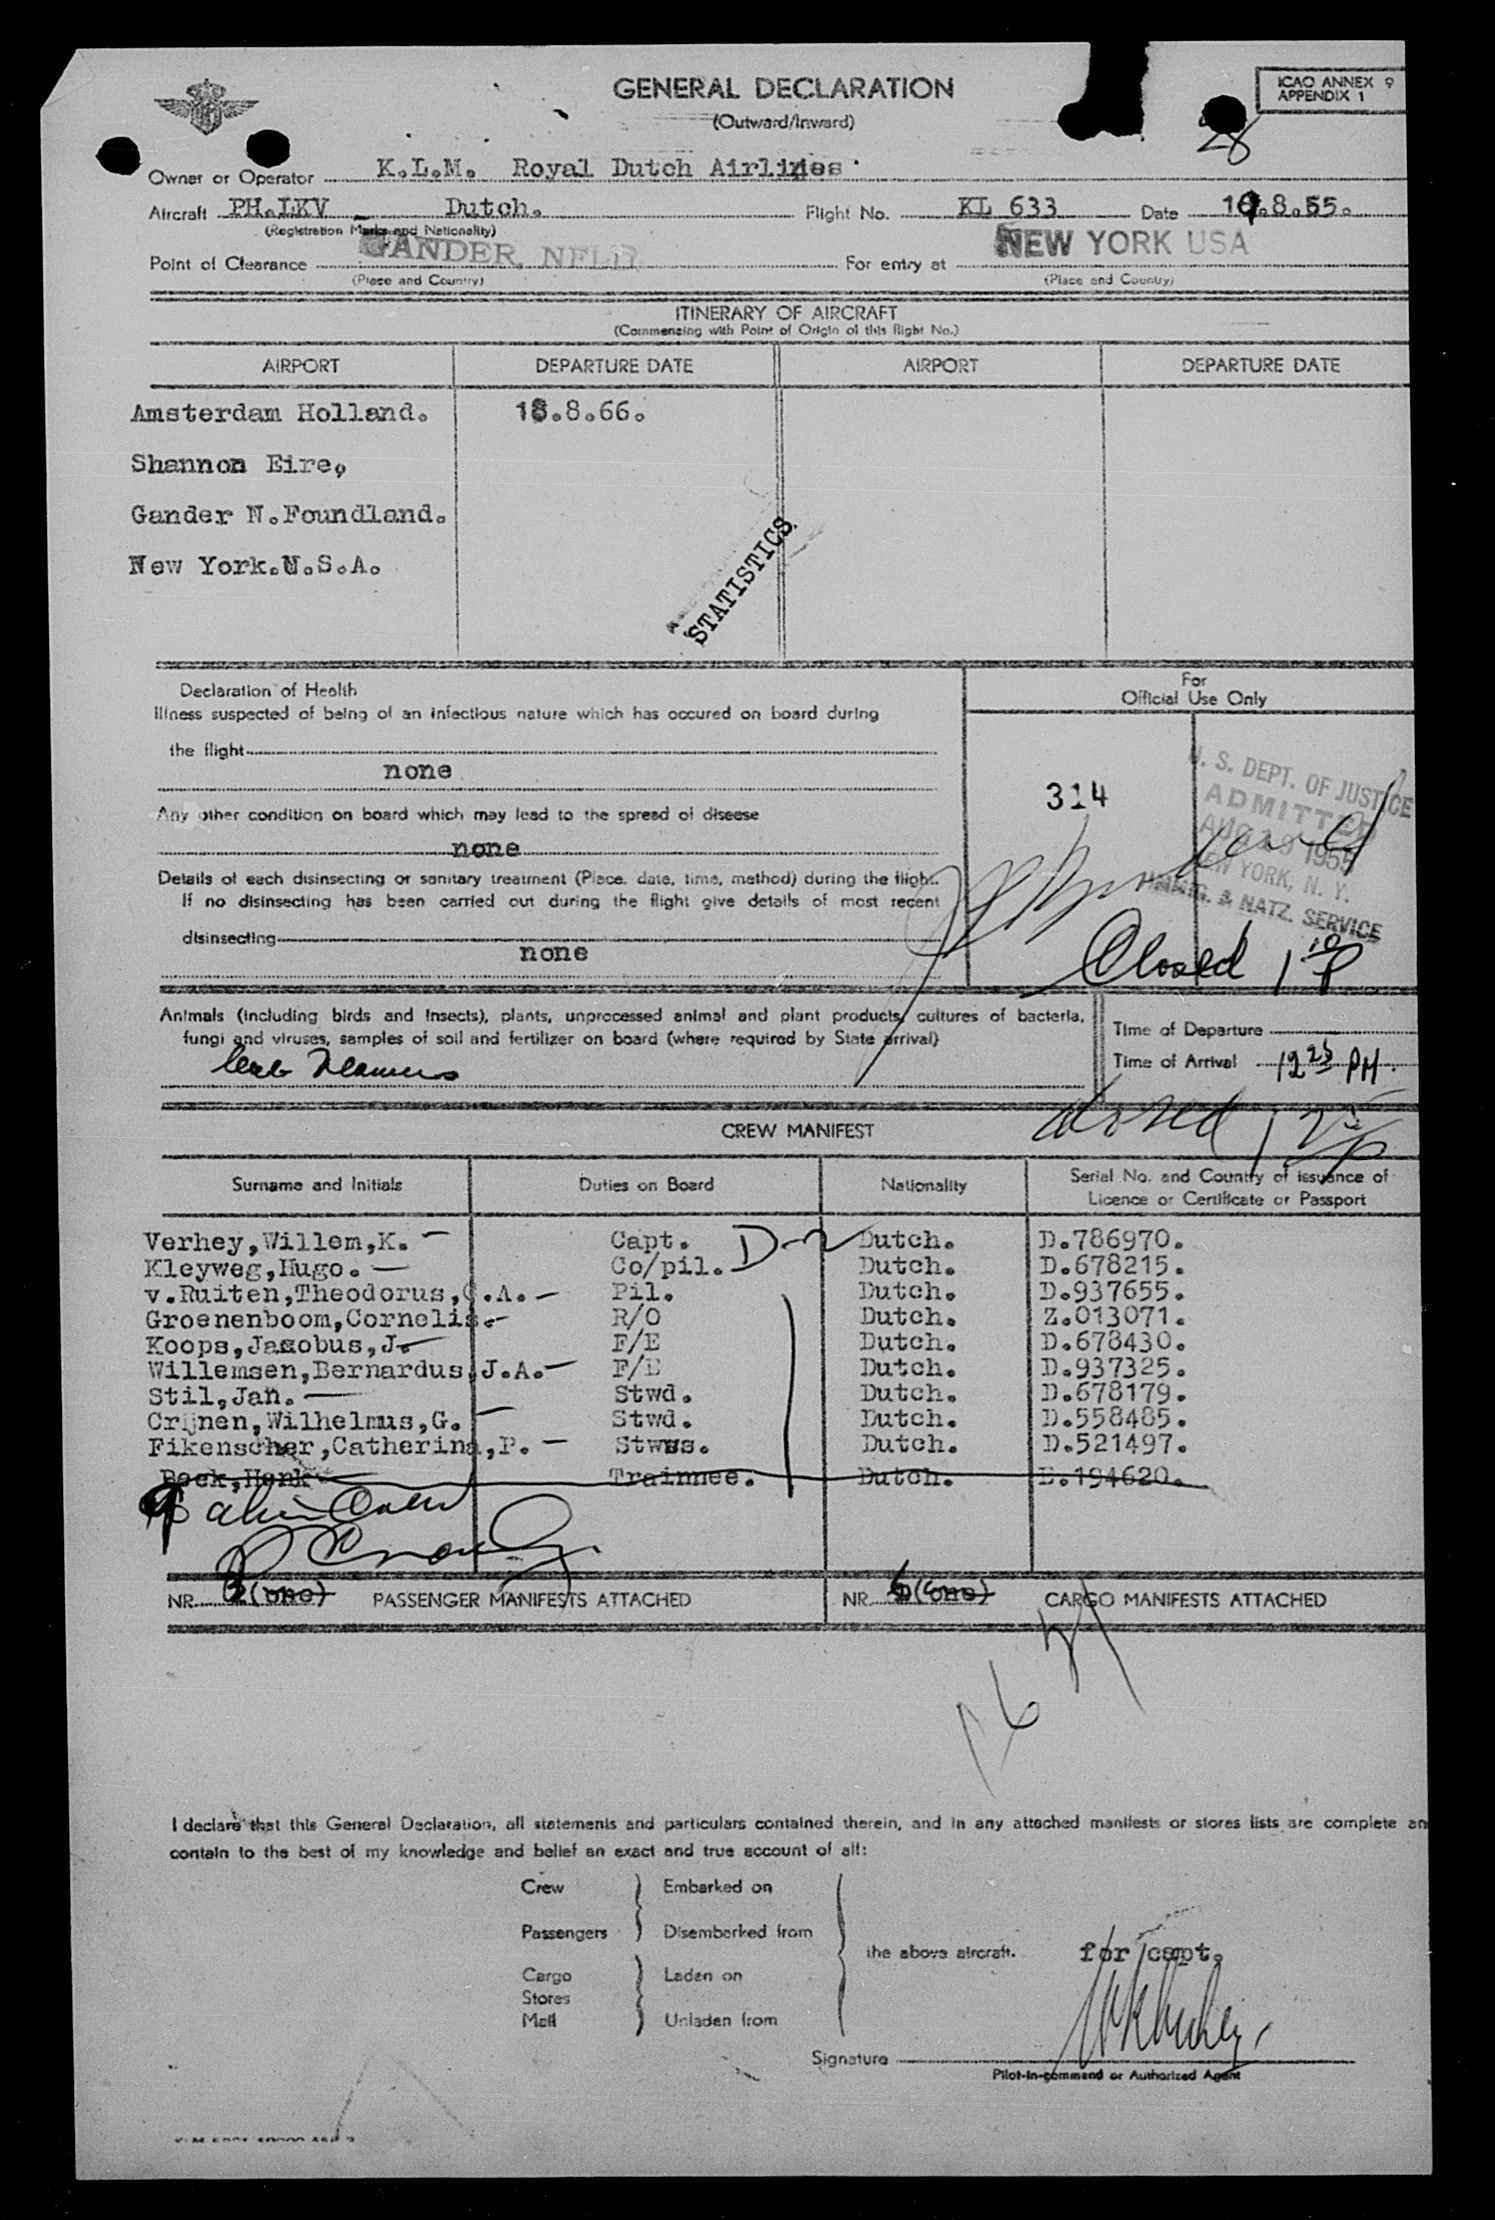 GENERAL DECLARATION
(Outward/Inward)
ICAO ANNEX 9
APPENDIX 1
28
Owner or Operator K.L.M. Royal Dutch Airlines
Aircraft PH.LKV - Dutch. Flight No. KL 633 Date 19.8.55.
(Registration Marks and Nationality)
Point of Clearance GANDER, NFLD For entry at NEW YORK USA
(Place and Country) (Place and Country)
ITINERARY OF AIRCRAFT
(Commencing with Point of Origin of this flight No.)
AIRPORT DEPARTURE DATE AIRPORT DEPARTURE DATE
Amsterdam Holland. 18.8.66.
Shannon Eire,
Gander N.Foundland.
New York.U.S.A.
STATISTICS
Declaration of Health
Illness suspected of being of an infectious nature which has occured on board during
the flight
none
Any other condition on board which may lead to the spread of disease
none
Details of each disinsecting or sanitary treatment (Place, date, time, method) during the flight.
If no disinsecting has been carried out during the flight give details of most recent
disinsecting
none
For
Official Use Only
314
U. S. DEPT. OF JUSTICE
ADMITTED
AUG 19 1955
NEW YORK, N. Y.
IMMIG. & NATZ. SERVICE
Closed 1 10 P
Animals (including birds and insects), plants, unprocessed animal and plant products, cultures of bacteria,
fungi and viruses, samples of soil and fertilizer on board (where required by State arrival)
Time of Departure
Time of Arrival 12 25 PM.
closed 1 25 P
CREW MANIFEST
Surname and Initials Duties on Board Nationality Serial No. and Country of issuance of
Licence or Certificate or Passport
Verhey,Willem,K. Capt. D-2 Dutch. D.786970.
Kleyweg,Hugo. Co/pil. Dutch. D.678215.
v.Ruiten,Theodorus,C.A. Pil. Dutch. D.937655.
Groenenboom,Cornelis. R/O Dutch. Z.013071.
Koops,Jacobus,J. F/E Dutch. D.678430.
Willemsen,Bernardus,J.A. F/E Dutch. D.937325.
Stil,Jan. Stwd. Dutch. D.678179.
Crijnen,Wilhelmus,G. Stwd. Dutch. D.558485.
Fikenscher,Catherina,P. Stwss. Dutch. D.521497.
Boek,Henk Trainnee. Dutch. E.194620.
NR. 2 (one) PASSENGER MANIFESTS ATTACHED NR. 6 (one) CARGO MANIFESTS ATTACHED
I declare that this General Declaration, all statements and particulars contained therein, and in any attached manifests or stores lists are complete an
contain to the best of my knowledge and belief an exact and true account of all:
Crew Embarked on
Passengers Disembarked from
the above aircraft.
Cargo Laden on
Stores
Mail Unladen from
for capt.
Signature
Pilot-in-command or Authorized Agent